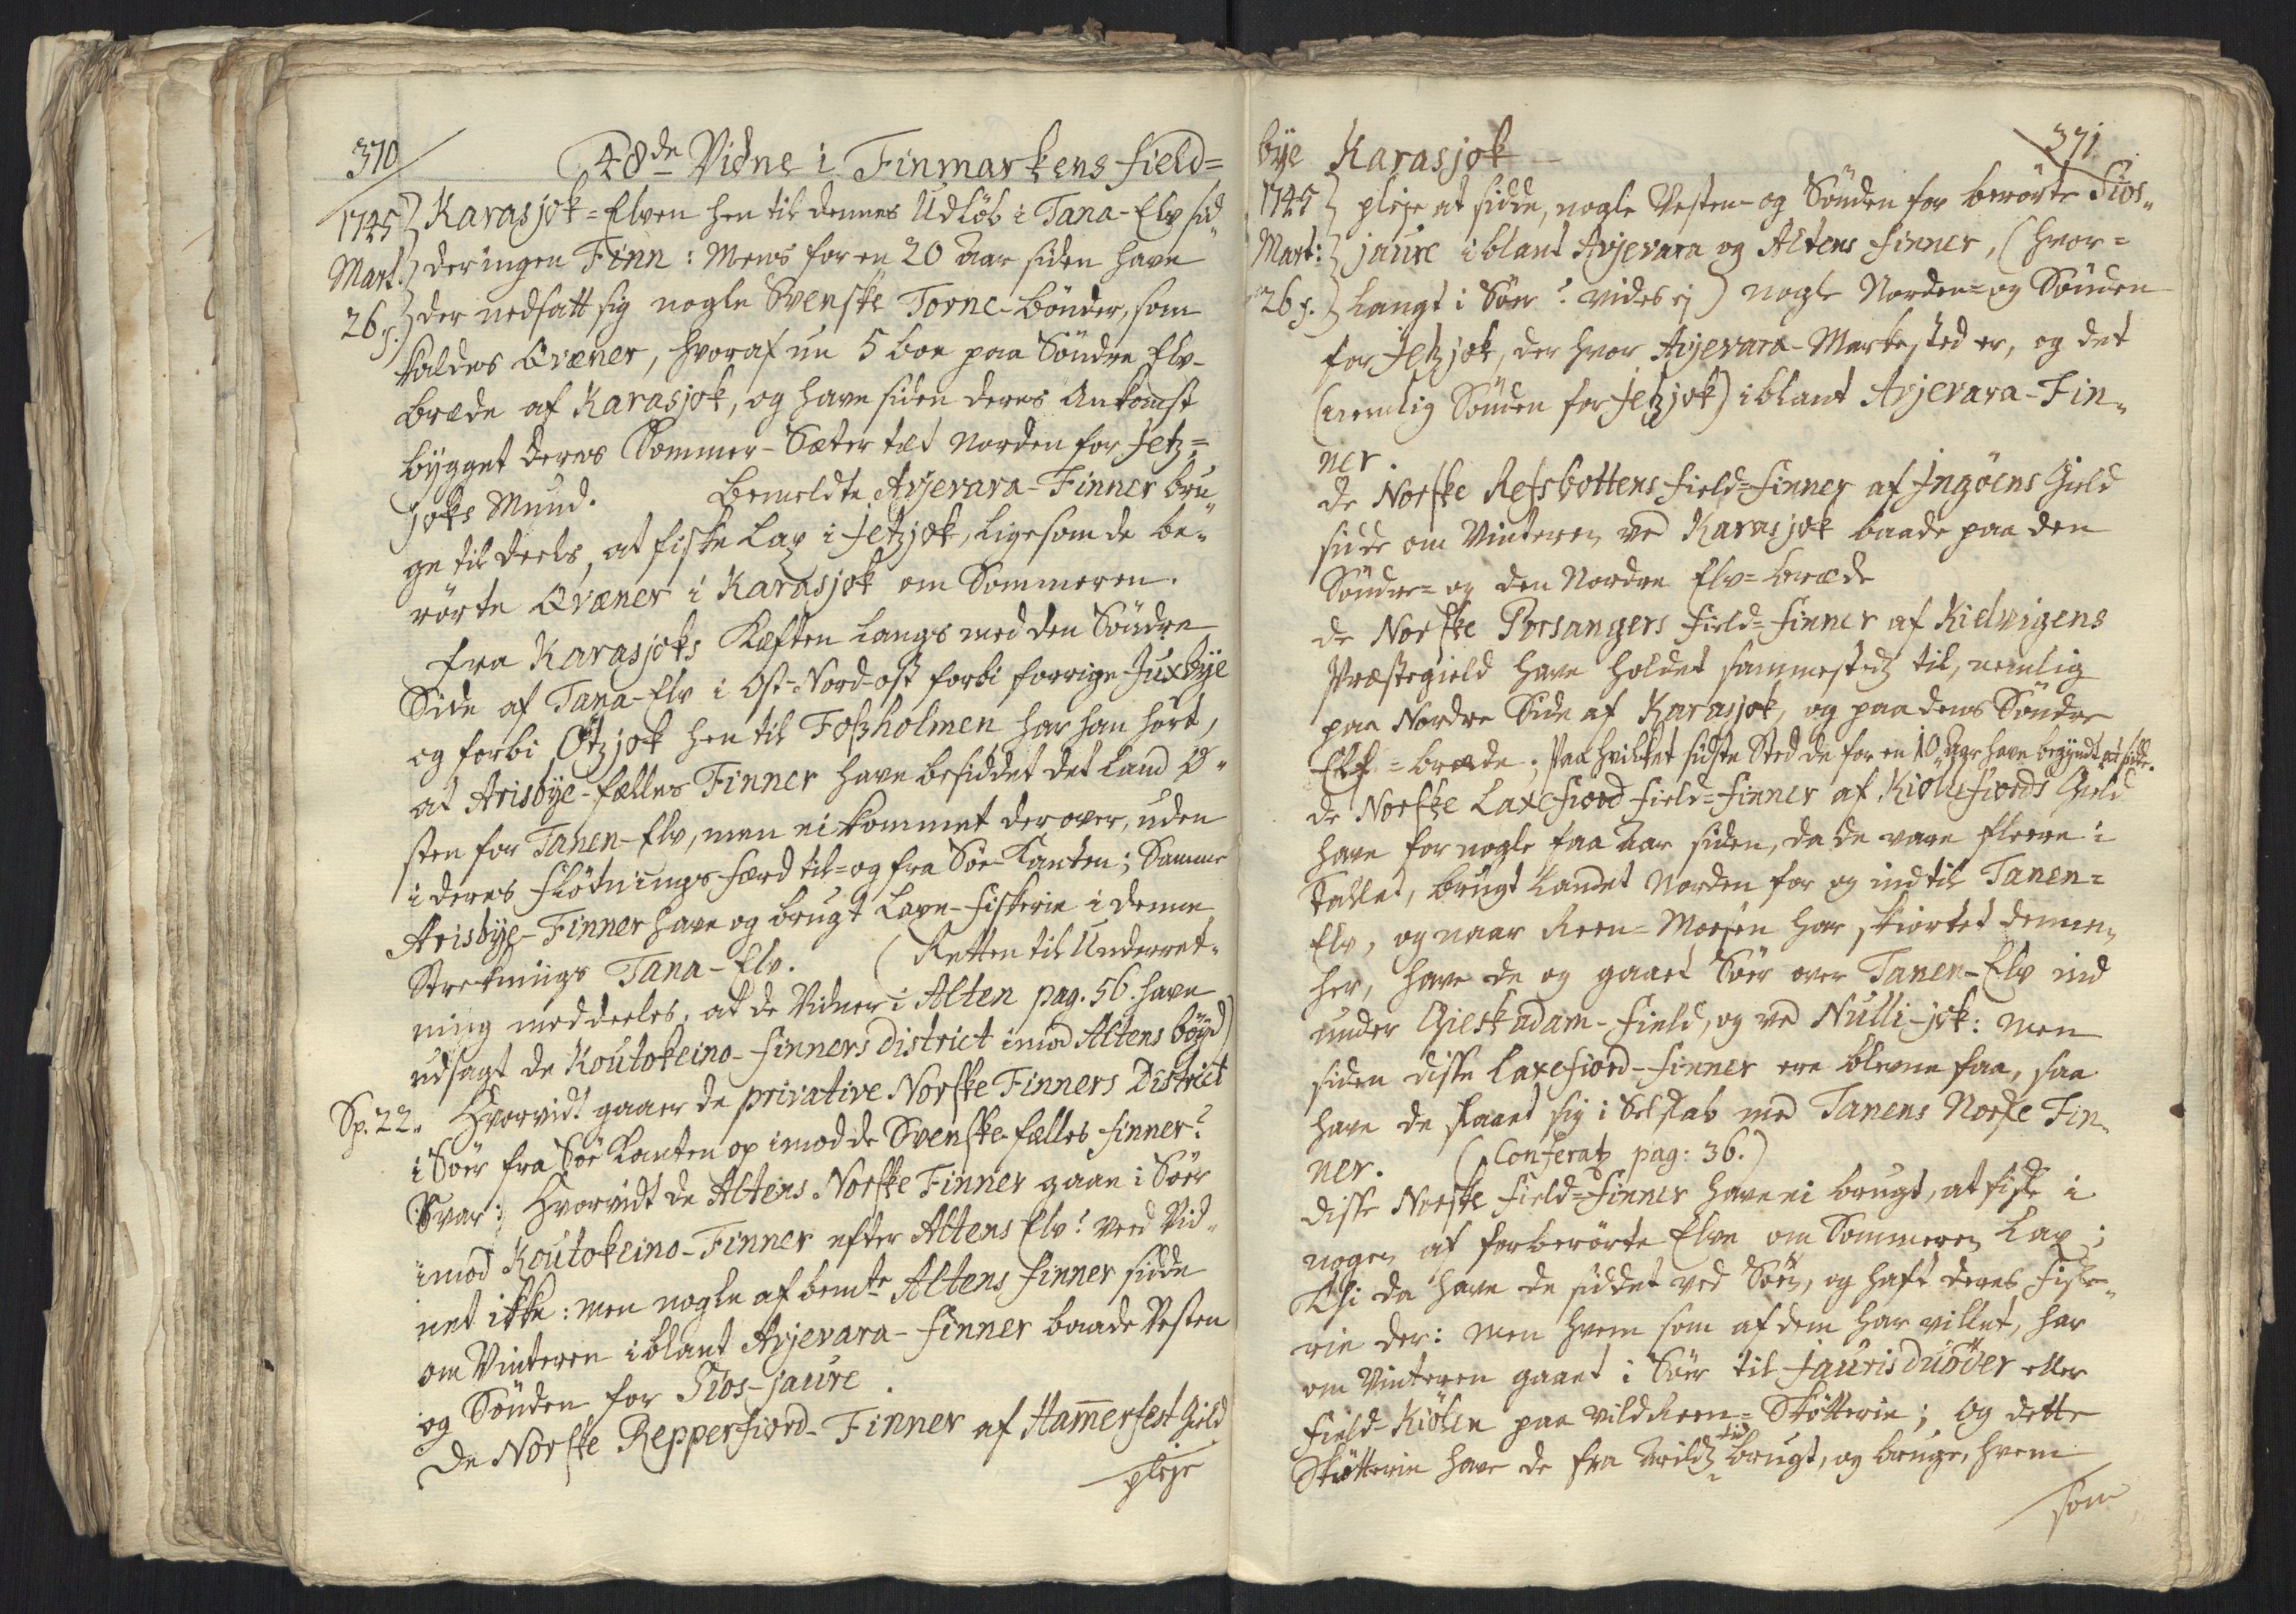 370
48de Vidne i Finmarkens Field=
1745 Karasjok=Elven hen til dennes Udløb i Tana-Elv sid¨
Mart. der ingen Finn: Mens for en 20 Aar siden have
26 s. der nedsatt sig nogle Svenske Torne-bønder, som
kaldes Qvæner, hvoraf nu 5 boe paa Søndre Elv-
bræde af Karasjok, og have siden deres Ankomst
bygget deres Sommer-Sæter tæt norden for Jetz=
joks Mund. Bemeldte Avjevara-Finner bru¨
ge til deels, at fiske Lax i Jetzjok, ligesom de be¨
rørte Qvæner i Karasjok om Sommeren.
fra Karasjoks Kæften langs med den Søndre
Side af Tana-Elv i Ost-Nord-ost forbi forrige Juxbÿe
og forbi Otzjok hen til Foßholmen har han hørt,
at Arisbÿe-fælles Finner have besiddet det Land Ø¨
sten for Tanen-Elv, men ei kommet derover, uden
i deres Fløtnings færd til= og fra Søe-Kanten; Samme
Arisbÿe-Finner have og brugt Laxe-Fiskerie i denne
Streknings Tana-Elv. (Retten til Underret¨
ning meddeeles, at de Vidner i Alten pag. 56. have
udsagt de Koutokeino-Finners District imod Altens bøyd)
Sp. 22. Hvorvidt gaaer de privative Norske Finners District
i Søer fra Søe Kanten op imod de Svenske-fælles Finner?
Svar: Hvorvidt de Altens Norske Finner gaae i Søer
imod Koutokeino-Finner efter Altens Elv? veed Vid¨
net ikke: men nogle af bemte Altens Finner sidde
om Vinteren iblant Avjevara-Finner baade Vesten
og Sønden for Sios-jaure.
De Norske Repperfiord-Finner af Hammerfest Gield
pleje
bÿe Karasjok
371
1745 pleje at sidde, nogle Vesten- og Sønden for berørte Sios¨
Mart: jaure iblant Avjevara og Altens Finner, (hvor=
26 s. langt i Søer? vides ej) nogle Norden= og Sønden
for Jetzjok, der hvor Avjevara-Markested er, og det
(nemlig Sønden for Jetzjok) iblant Avjevara-Fin¨
ner.
de Norske Refsbottens Field=Finner af Ingøens Gield
sidde om Vinteren ved Karasjok baade paa den
Søndre= og den Nordre Elv=bræde
de Norske Porsangers Field=Finner af Kielvigens
Præstegield have holdet sammestedz til, nemlig
paa Nordre Side af Karasjok, og paa dens Søndre
Elf=bræde; paa hvilket sidste Sted de for en 10 Aar have begyndt at sidde.
de Norske Laxefiord Field=Finner af Kiøllefiords Gield
have for nogle faa Aar siden, da de vare fleere i
Tallet, brugt Landet Norden for og indtil Tanen=
Elv, og naar Reen=Moesen har skortet dennem
her, have de og gaaet Søer over Tanen-Elv ind
under Gieskadam-Field, og ved Nulli-jok: men
siden disse Laxefiord-Finner ere blevne faa, saa
have de slaaet sig i Selskab med Tanens Norske Fin¨
ner. (Conferatz pag: 36.)
disse Norske Field=Finner have ei brugt, at fiske i
nogen af forberørte Elve om Sommeren Lax;
Thi da have de siddet ved Søen, og haft deres Fiske¨
rie der: men hvem som af dem har villet, har
om Vinteren gaaet i Søer til Jauris duøder eller
Field-Kiølen paa vild Reen=Skøtterie; og dette
Skøtterie have de fra Arildz tid brugt, og bruge, hvem
som